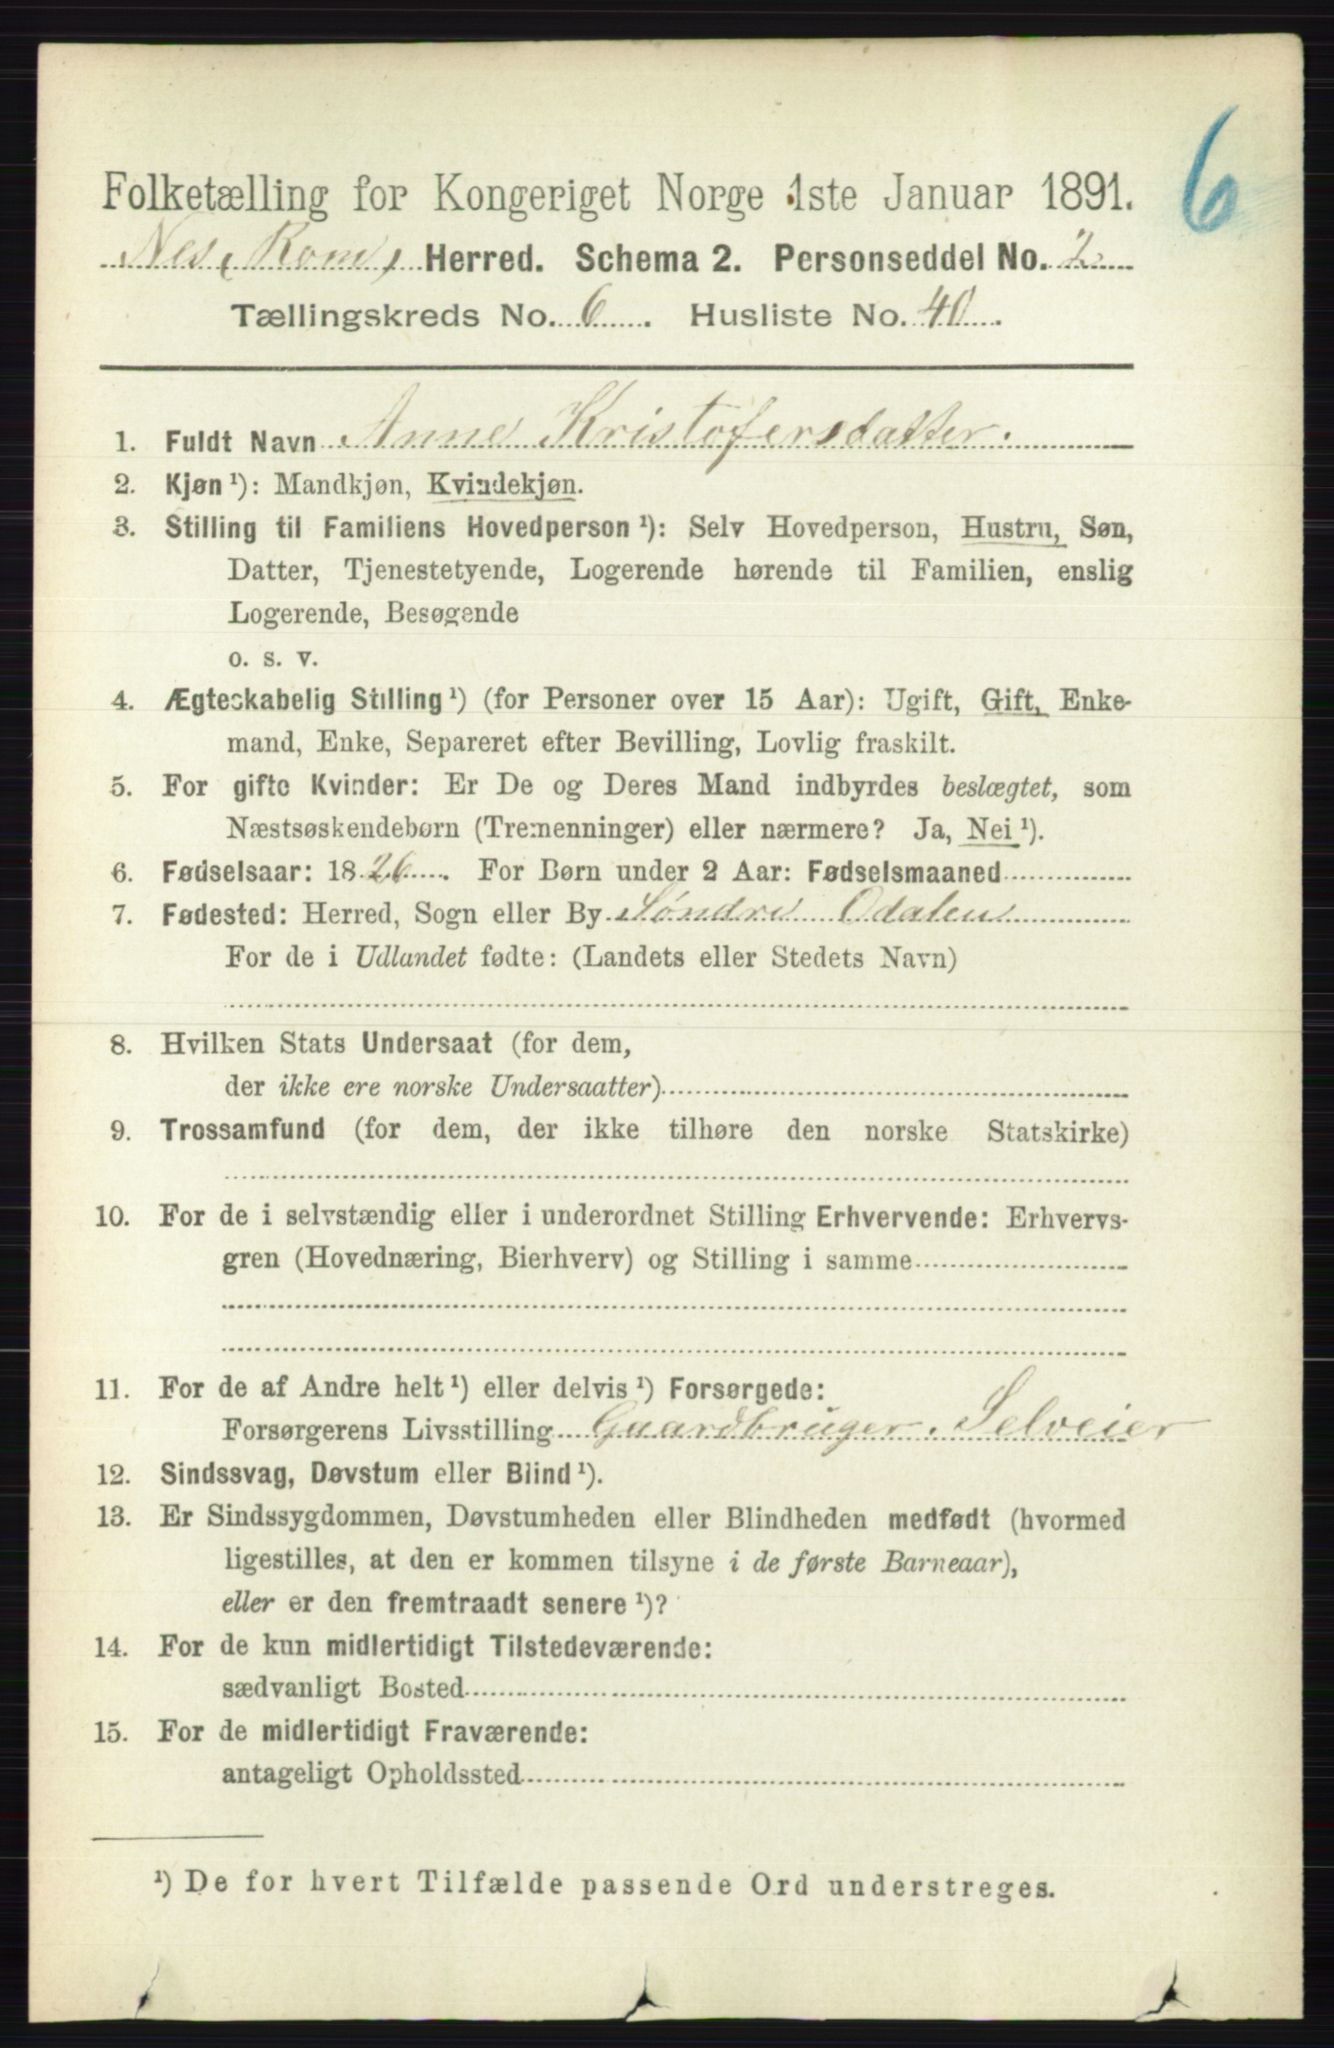 6
Folketælling for Kongeriget Norge 1ste Januar 1891.
Nes (Rom) Herred. Schema 2. Personseddel No. 2
Tællingskreds No. 6. Husliste No. 40.
1. Fuldt Navn Anne Kristofersdatter.
2. Kjøn ¹): Mandkjøn, Kvindekjøn.
3. Stilling til Familiens Hovedperson ¹): Selv Hovedperson, Hustru, Søn,
Datter, Tjenestetyende, Logerende hørende til Familien, enslig
Logerende, Besøgende
o. s. v.
4. Ægteskabelig Stilling ¹) (for Personer over 15 Aar): Ugift, Gift, Enke-
mand, Enke, Separeret efter Bevilling, Lovlig fraskilt.
5. For gifte Kvinder: Er De og Deres Mand indbyrdes beslægtet, som
Næstsøskendebørn (Tremenninger) eller nærmere? Ja, Nei ¹).
6. Fødselsaar: 1826. For Børn under 2 Aar: Fødselsmaaned
7. Fødested: Herred, Sogn eller By Søndre Odalen
For de i Udlandet fødte: (Landets eller Stedets Navn)
8. Hvilken Stats Undersaat (for dem,
der ikke ere norske Undersaatter)
9. Trossamfund (for dem, der ikke tilhøre den norske Statskirke)
10. For de i selvstændig eller i underordnet Stilling Erhvervende: Erhvervs-
gren (Hovednæring, Bierhverv) og Stilling i samme
11. For de af Andre helt ¹) eller delvis ¹) Forsørgede:
Forsørgerens Livsstilling Gaardbruger. Selveier
12. Sindssvag, Døvstum eller Blind ¹).
13. Er Sindssygdommen, Døvstumheden eller Blindheden medfødt (hvormed
ligestilles, at den er kommen tilsyne i de første Barneaar),
eller er den fremtraadt senere ¹)?
14. For de kun midlertidigt Tilstedeværende:
sædvanligt Bosted
15. For de midlertidigt Fraværende:
antageligt Opholdssted
¹) De for hvert Tilfælde passende Ord understreges.